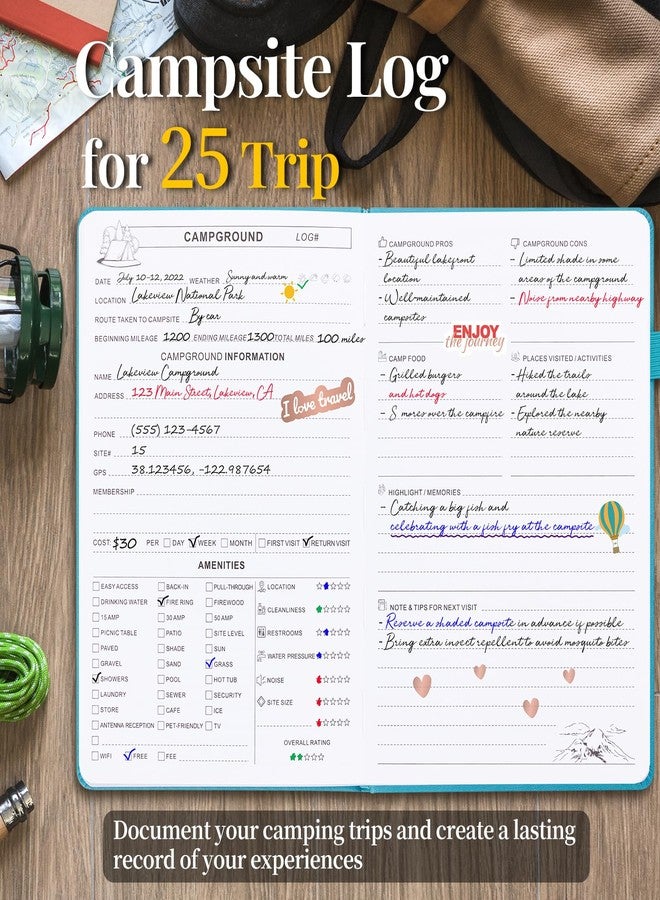 Campsite Log
for 25 Trip
CAMPGROUND LOG#
DATE July 10-12, 2022 WEATHER Sunny and warm
LOCATION Lakeview National Park
ROUTE TAKEN TO CAMPSITE By car
BEGINNING MILEAGE 1200 ENDING MILEAGE 1300 TOTAL MILES 100 miles
CAMPGROUND INFORMATION
NAME Lakeview Campground
ADDRESS 123 Main Street, Lakeview, CA
I love travel
PHONE (555) 123-4567
SITE# 15
GPS 38.123456, -122.987654
MEMBERSHIP
COST: $30 PER DAY WEEK MONTH FIRST VISIT RETURN VISIT
AMENITIES
EASY ACCESS BACK-IN PULL-THROUGH LOCATION
DRINKING WATER FIRE RING FIREWOOD
CLEANLINESS
15 AMP 30 AMP 50 AMP
PICNIC TABLE PATIO SITE LEVEL RESTROOMS
PAVED SHADE SUN
WATER PRESSURE
GRAVEL SAND GRASS
SHOWERS POOL HOT TUB NOISE
LAUNDRY SEWER SECURITY SITE SIZE
STORE CAFE ICE
ANTENNA RECEPTION PET-FRIENDLY TV
OVERALL RATING
WIFI FREE FEE
CAMPGROUND PROS
- Beautiful lakefront
location
- Well-maintained
campsites
CAMPGROUND CONS
- Limited shade in some
areas of the campground
- Noise from nearby highway
ENJOY
the journey
CAMP FOOD
- Grilled burgers
and hot dogs
- S'mores over the campfire
PLACES VISITED / ACTIVITIES
- Hiked the trails
around the lake
- Explored the nearby
nature reserve
HIGHLIGHT / MEMORIES
- Catching a big fish and
celebrating with a fish fry at the campsite
NOTE & TIPS FOR NEXT VISIT
- Reserve a shaded campsite in advance if possible
- Bring extra insect repellent to avoid mosquito bites
Document your camping trips and create a lasting
record of your experiences